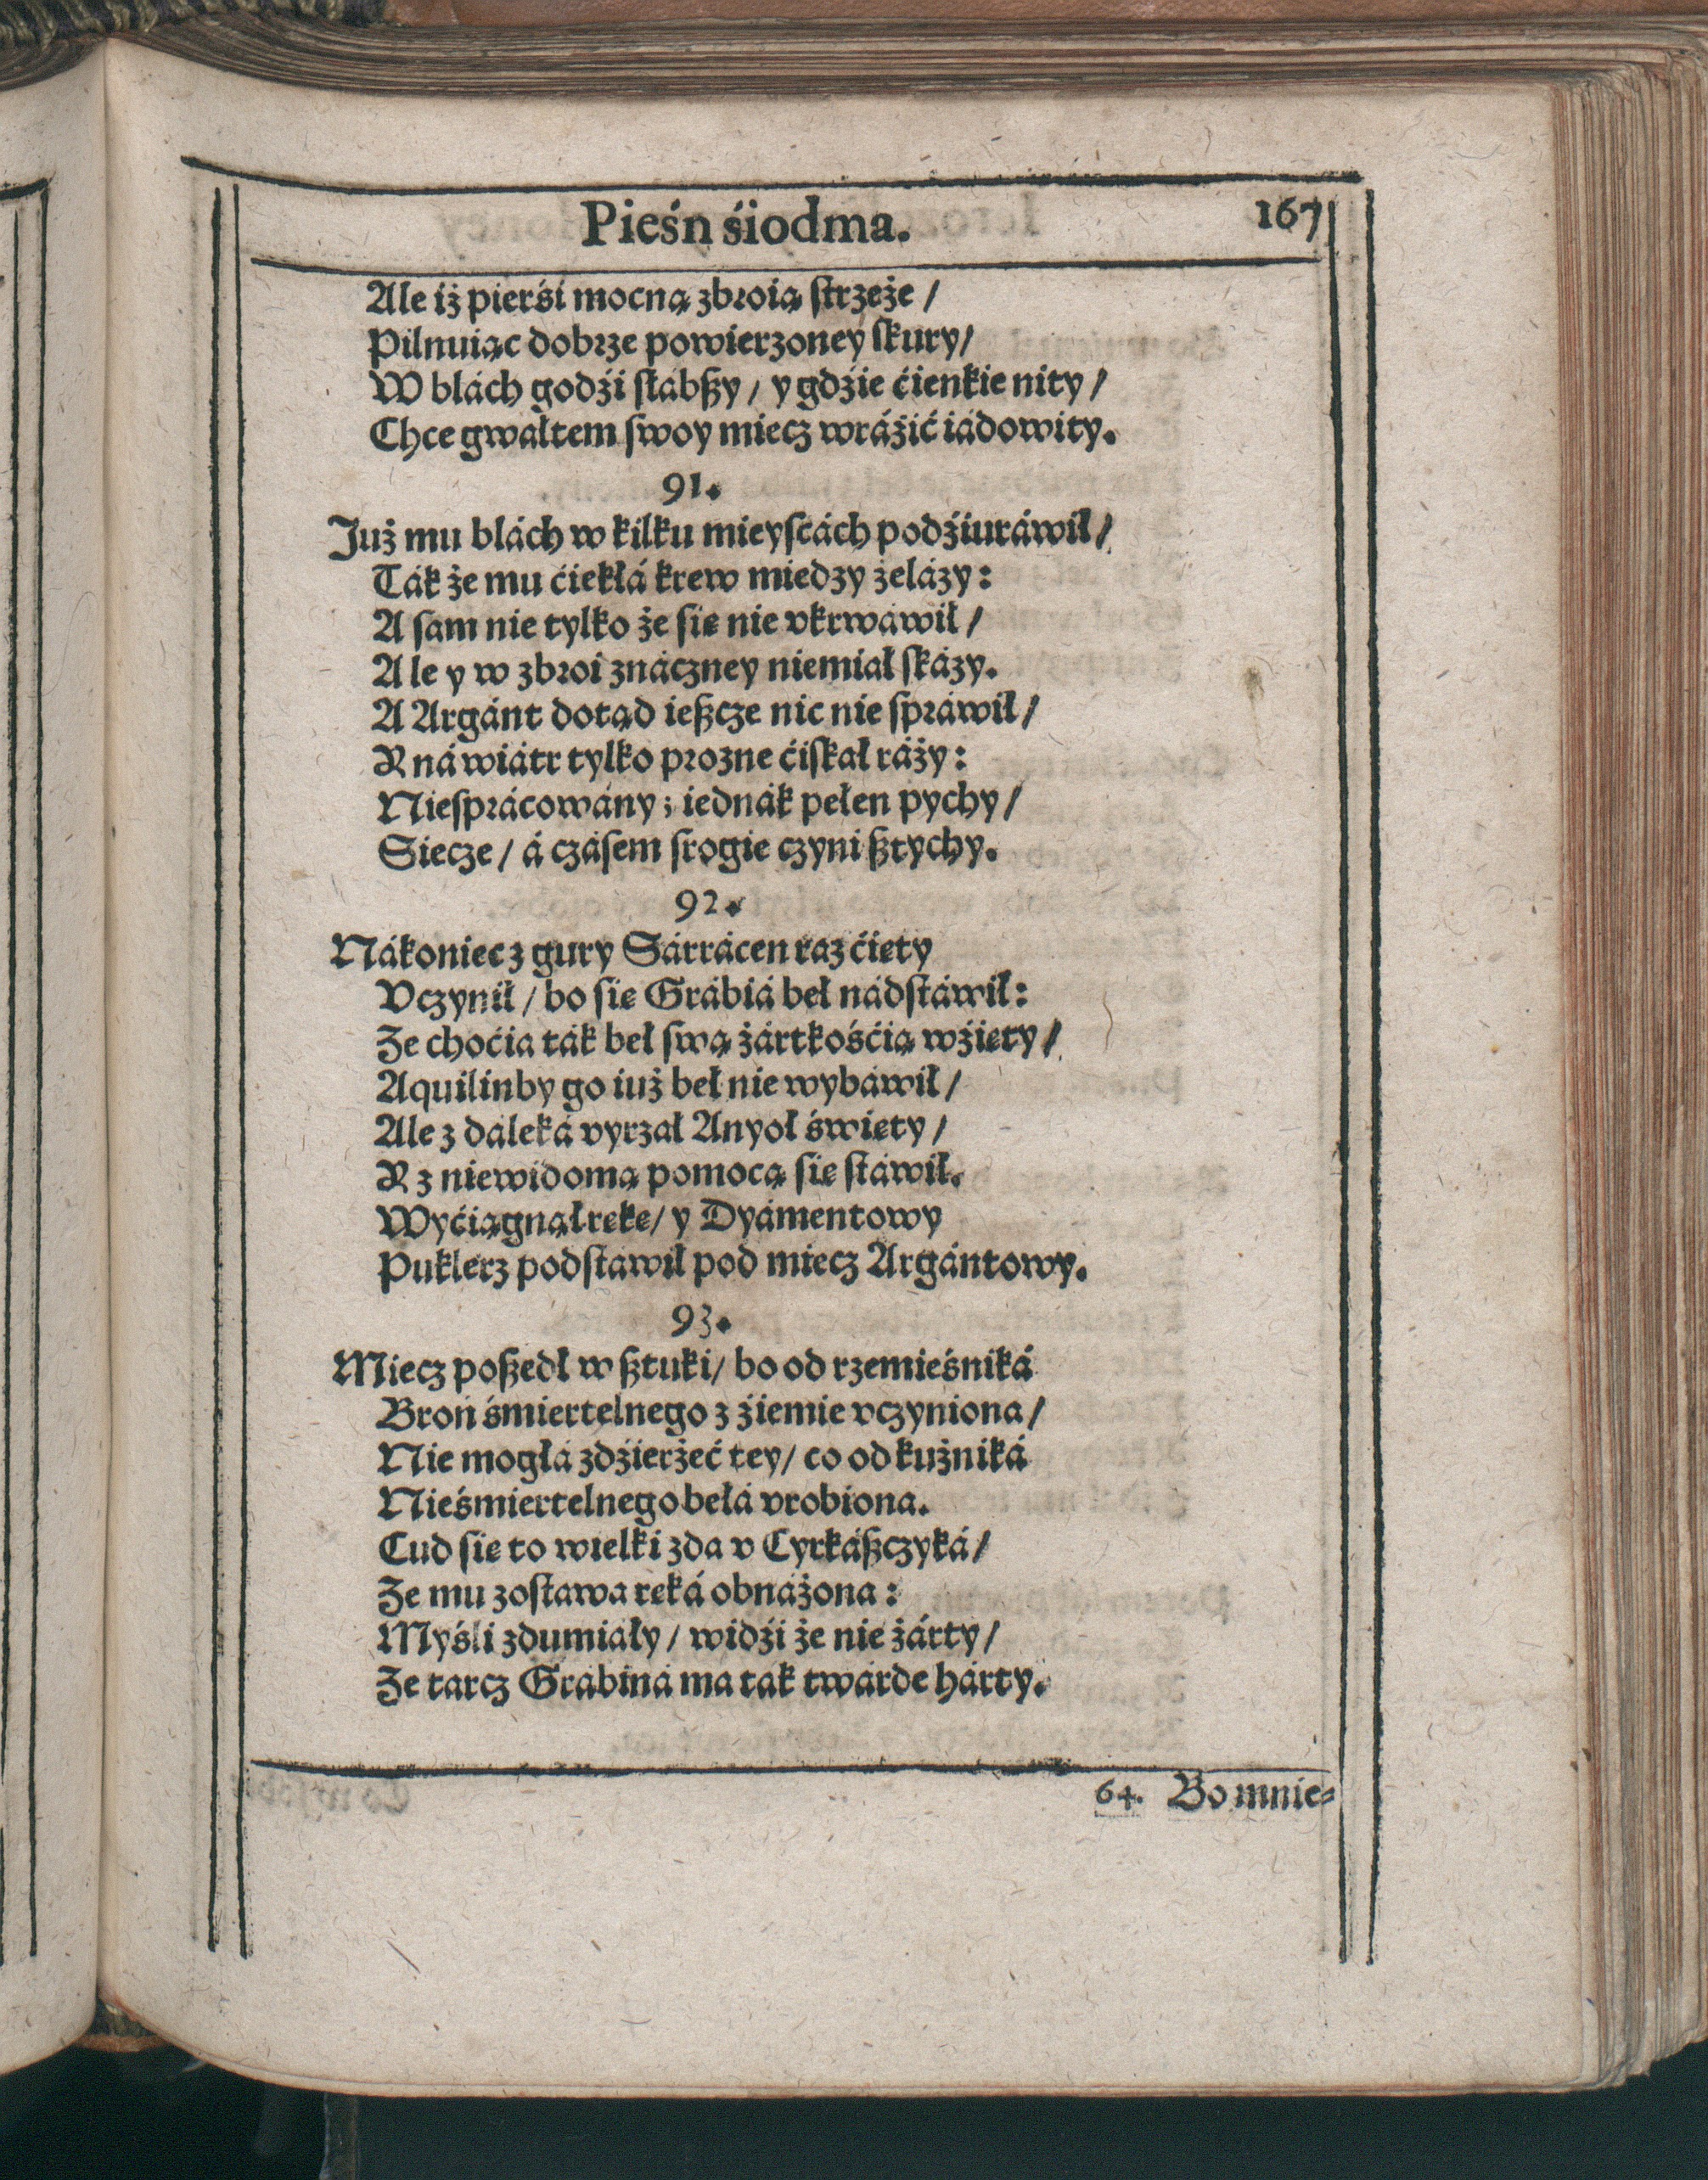 Pieśn śiodma.
167
Ale iż pierśi mocną zbroią strzeże /
Pilnuiąc dobrze powierzoney skury /
W blách godźi słábßy / y gdźie ćienkie nity /
Chce gwałtem swoy miecz wráżić iádowity.
91.
Już mu blách w kilku mieyscách podźiuráwił /
Ták że mu ćiekłá krew miedzy żelázy:
A sam nie tylko że się nie vkrwáwił /
Ale y w zbroi znáczney niemiał skázy.
A Argánt dotąd ießcze nic nie spráwił /
R ná wiátr tylko prozne ćiskał ráży:
Niesprácowány; iednák pełen pychy /
Siecze / á czásem srogie czyni ßtychy.
92.
Nákoniec z gury Sárrácen raz ćięty
Vczynił / bo się Grábiá beł nádstáwił:
Ze choćia ták beł swą żártkośćią wźięty /
Aquilinby go iuż beł nie wybáwił /
Ale z dáleká vyrzał Anyoł święty /
R z niewidomą pomocą się stáwił.
Wyćiągnął rękę / y Dyámentowy
Puklerz podstáwił pod miecz Argántowy.
93.
Miecz poßedł w ßtuki / bo od rzemieśniká
Broń śmiertelnego z źiemie vczyniona /
Nie mogłá zdźierżeć tey / co od kuźniká
Nieśmiertelnego bełá vrobiona.
Cud się to wielki zda v Cyrkáßczyká /
Ze mu zostawa ręká obnáżona:
Myśli zdumiáły / widźi że nie żárty /
Ze tarcz Grábina ma ták twárde hárty.
64. Bo mnie⸗